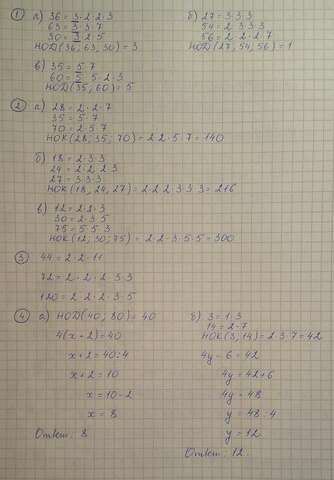 ① а) 36 = 3·2·2·3
63 = 3·3·7
30 = 3·2·5
НОD(36, 63, 30) = 3
б) 27 = 3·3·3
54 = 2·3·3·3
56 = 2·2·2·7
НОD(27, 54, 56) = 1
в) 35 = 5·7
60 = 5·5·2·3
НОD(35, 60) = 5
② а) 28 = 2·2·7
35 = 5·7
70 = 2·5·7
НОК(28, 35, 70) = 2·2·5·7 = 140
б) 18 = 2·3·3
24 = 2·2·2·3
27 = 3·3·3
НОК(18, 24, 27) = 2·2·2·3·3·3 = 216
в) 12 = 2·2·3
30 = 2·3·5
75 = 5·5·3
НОК(12, 30, 75) = 2·2·3·5·5 = 300
③ 44 = 2·2·11
72 = 2·2·2·3·3
120 = 2·2·2·3·5
④ а) НОD(40, 80) = 40
4(x + 2) = 40
x + 2 = 40:4
x + 2 = 10
x = 10 - 2
x = 8
Ответ: 8
б) 3 = 1·3
14 = 2·7
НОК(3, 14) = 2·3·7 = 42
4y - 6 = 42
4y = 42 + 6
4y = 48
y = 48:4
y = 12
Ответ: 12